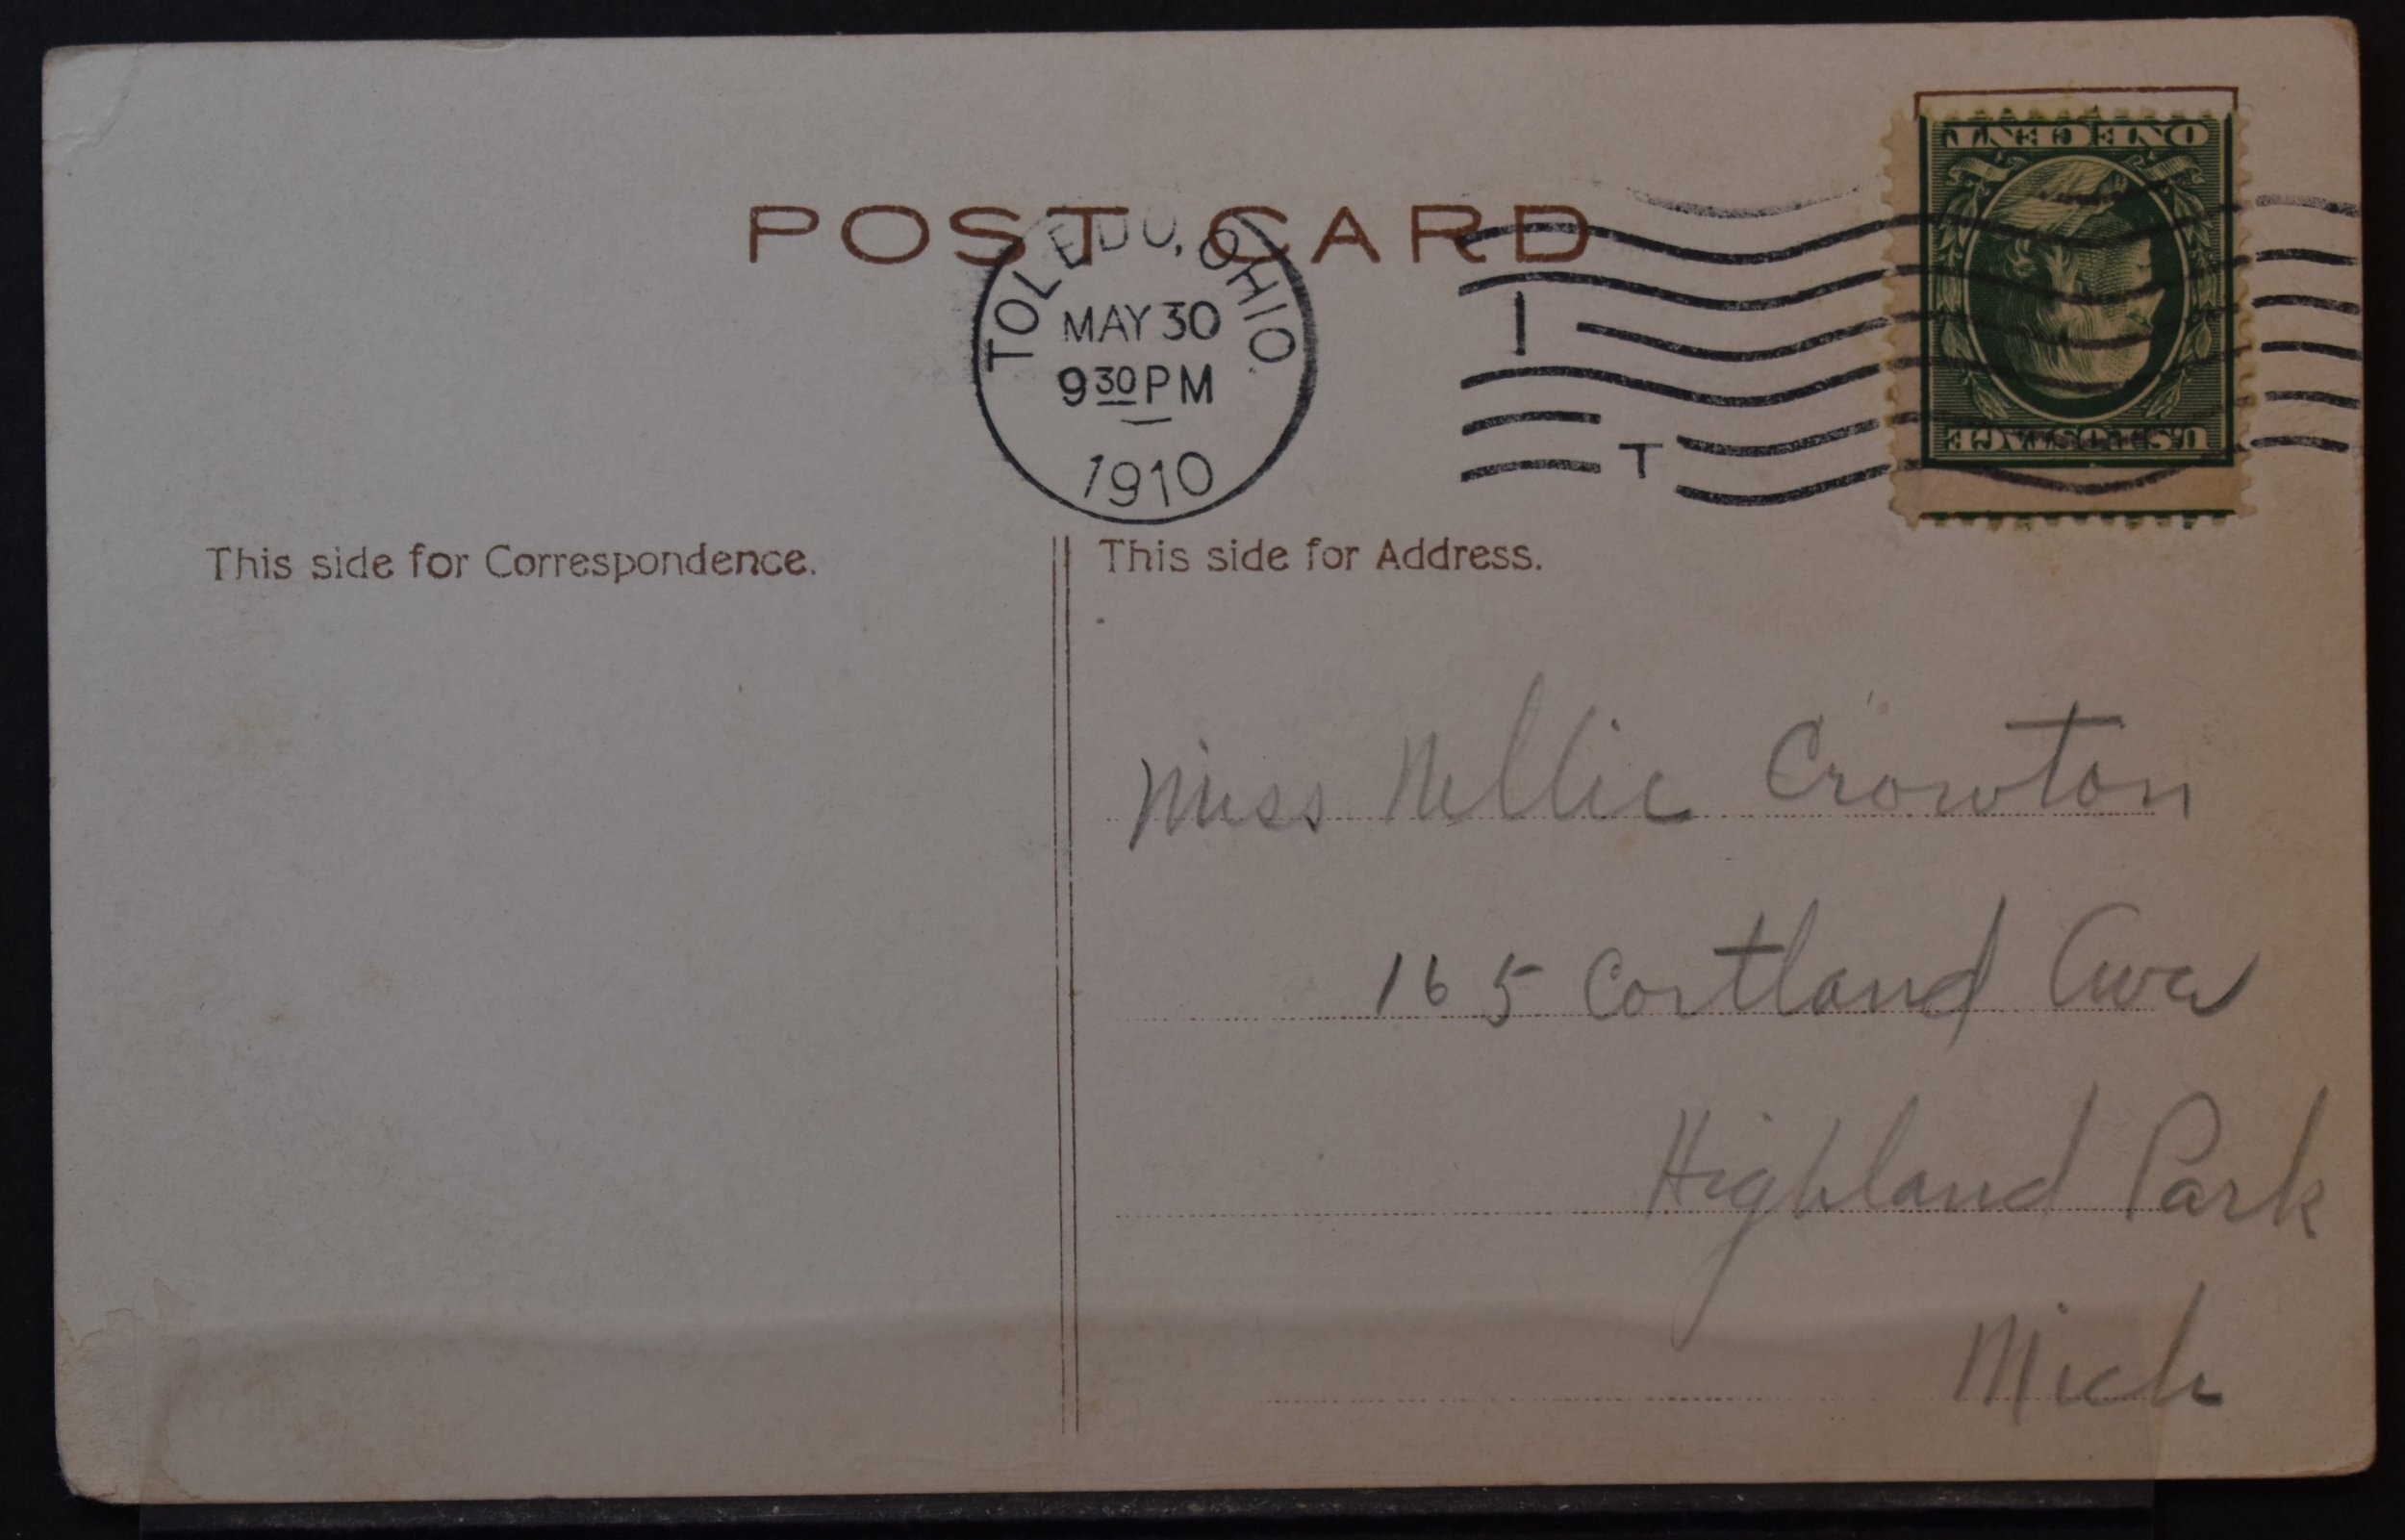 POST CARD
TOLEDO, OHIO.
MAY 30
9 30 PM
1910
I
T
ONE CENT
U.S. POSTAGE
This side for Correspondence.
This side for Address.
Miss Nellie Crowton
165 Cortland Ave
Highland Park
Mich